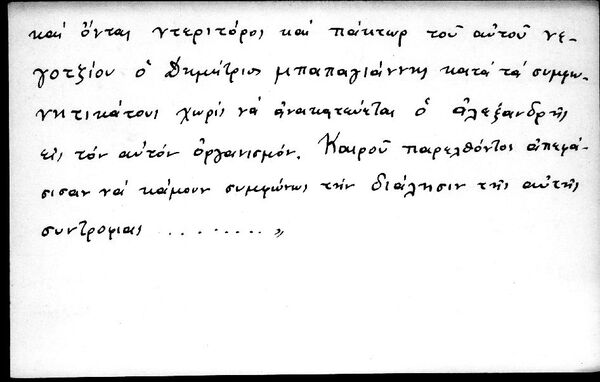 καί ὄντας ντεριτόρος καί πάκτωρ τοῦ αὐτοῦ νε-
γοτζίου ὁ Δημήτριος μπαπαγιάννης κατά τά συμφω-
νητικάτους χωρίς νά ἀνακατεύεται ὁ ἀλεξανδρῆς
εἰς τόν αὐτόν ὀργανισμόν. Καιροῦ παρελθόντος ἀπεφά-
σισαν νά κάμουν συμφώνως τήν διάλησιν τῆς αὐτῆς
συντροφιας ......... »